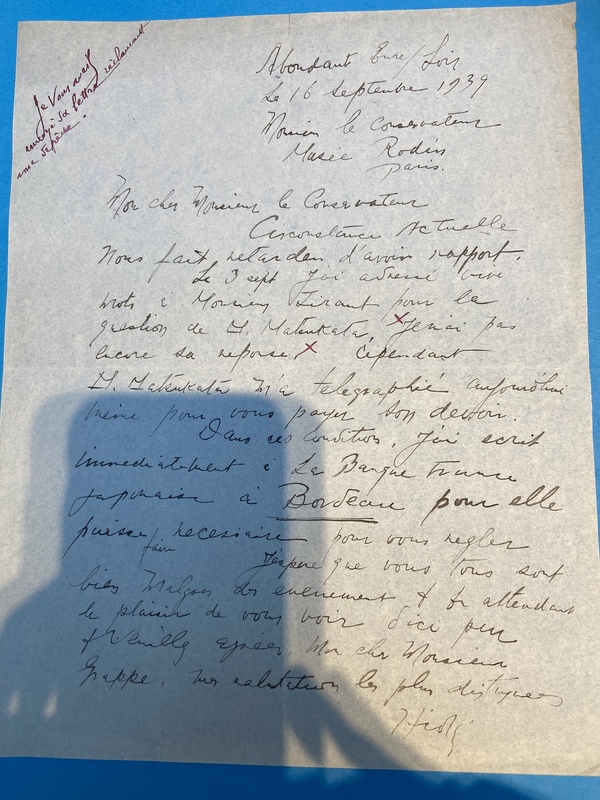 Je vous avais
envoyé six lettres réclamant
une dépêche.
Abondant Eure/Loir
Le 16 Septembre 1939
Monsieur le Conservateur
Musée Rodin
paris.
Mon cher Monsieur le Conservateur
Circonstance Actuelle
Nous fait retarder d'avoir rapport.
Le 3 sept j'ai adressé
mots à Monsieur pour la
question de M. Matsukata, X Je n'ai pas
encore sa reponse. X Cependant
M. Matsukata m'a telegraphié aujourd'hui
même pour vous payer son devoir.
Dans ces condition, j'ai ecrit
immediatement à La Banque France
japonaise à Bordeau pour elle
puisse / necessaire pour vous regler
faire
J'espere que vous tous sont
bien Malgres des evenement & En attendant
le plaisir de vous voir d'ici peu
& Veuillez agréer, Mon cher Monsieur
Grappe, mes salutations les plus distinguees